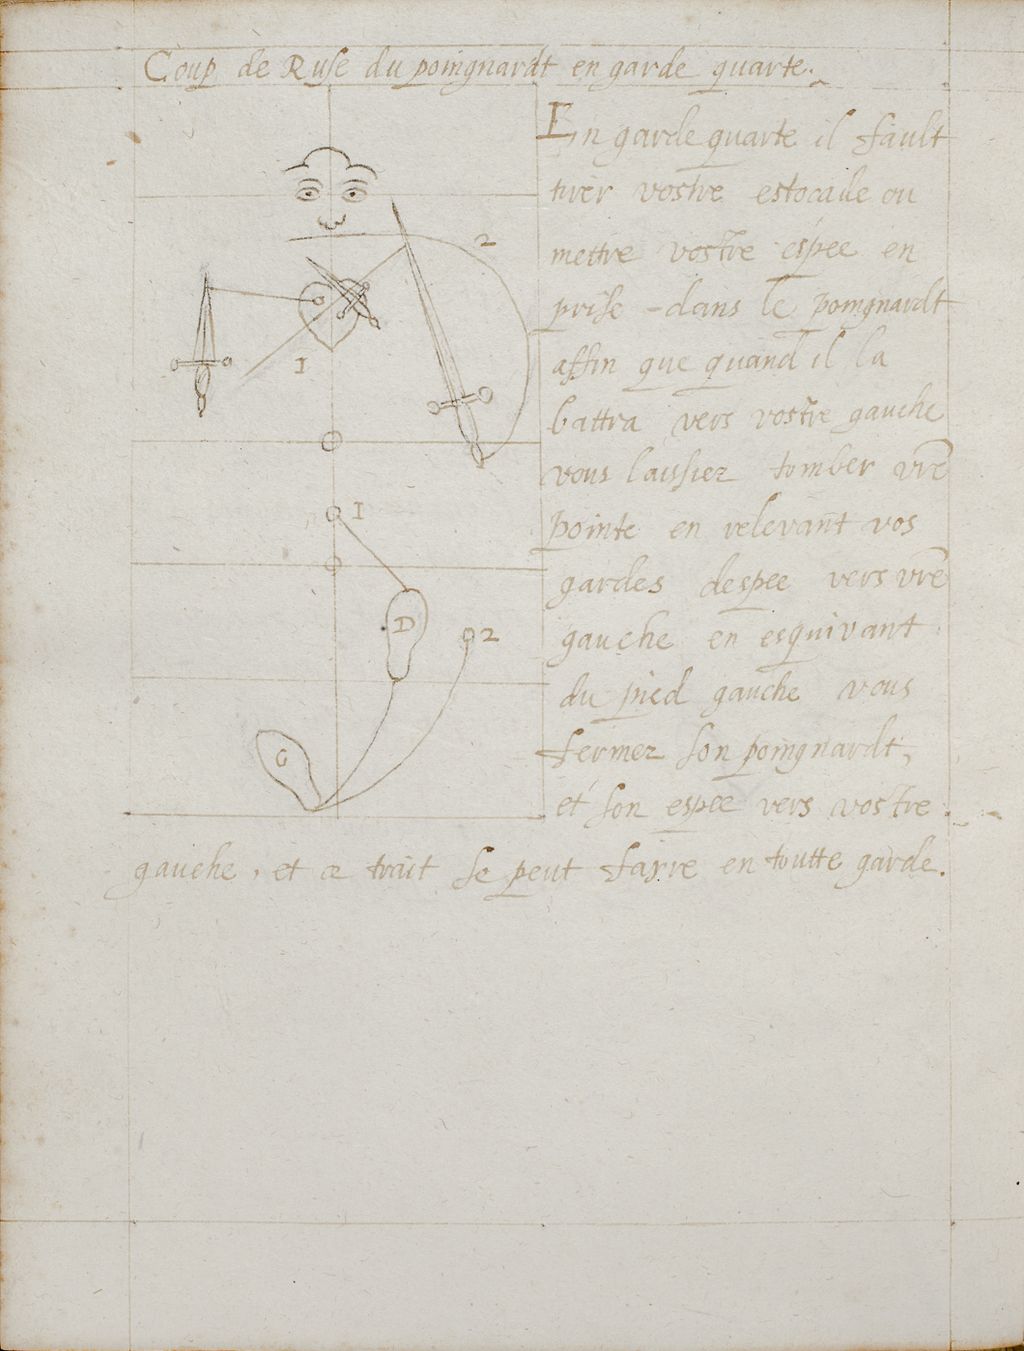 Coup de Ruse du poingnardt en garde quarte.
En garde quarte il fault
tirer vostre estocade ou
mettre vostre espee en
prise dans le poingnardt
affin que quand il la
battra vers vostre gauche
vous laissiez tomber vre
pointe en relevant vos
gardes despee vers vre
gauche en esquivant
du pied gauche vous
fermez son poingnardt,
et son espee vers vostre
gauche, et ce trait se peut faire en toutte garde.
2
1
1
D
2
G